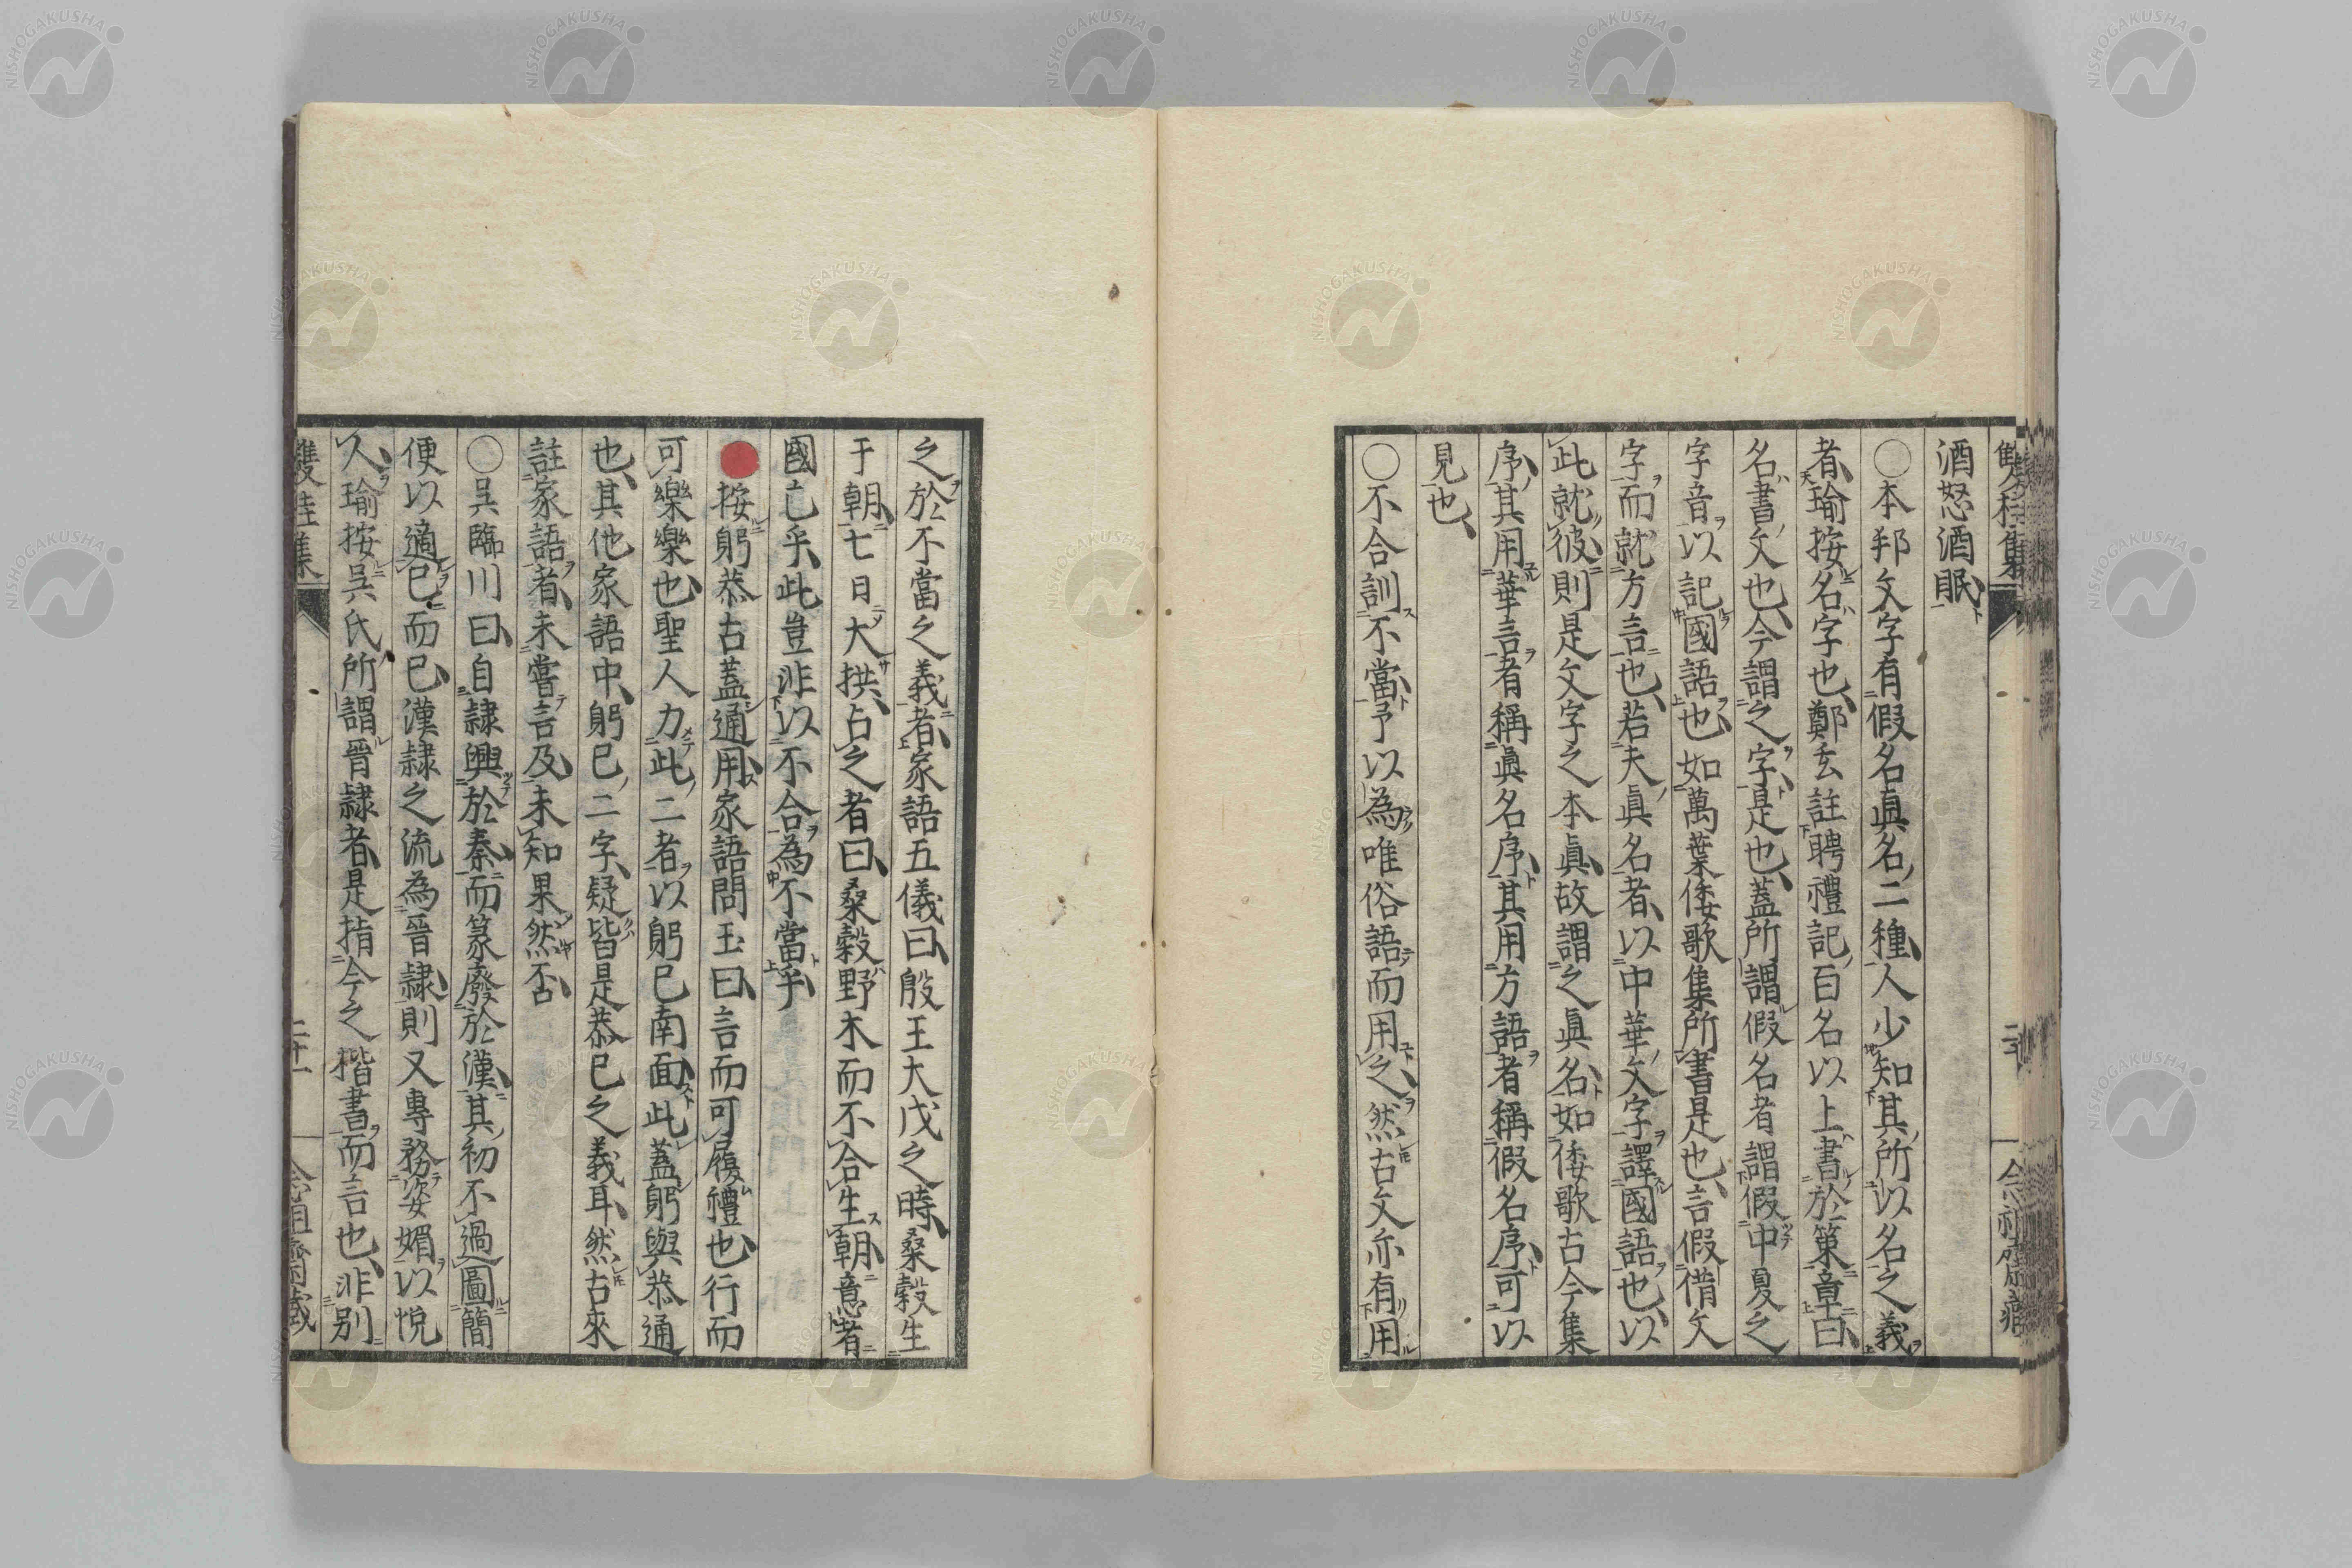 酒怒酒眠
○本邦文字有假名眞名二種人少知其所以名之義
者瑜按名字也鄭玄註聘禮記百名以上書於策章曰
名書文也今謂之字是也蓋所謂假名者謂假中夏之
字音以記國語也如萬葉倭歌集所書是也言假借文
字而就方言也若夫眞名者以中華文字譯國語也以
此就彼則是文字之本眞故謂之眞名如倭歌古今集
序其用華言者稱眞名序其用方語者稱假名序可以
見也
○不合訓不當予以為唯俗語而用之然古文亦有用
之於不當之義者家語五儀曰殷王大戊之時桑穀生
于朝七日大拱占之者曰桑穀野木而不合生朝意者
國亡乎此豈非以不合為不當乎
按躬恭古蓋通用家語問玉曰言而可履禮也行而
可樂樂也聖人力此二者以躬已南面此蓋躬與恭通
也其他家語中躬已二字疑皆是恭已之義耳然古來
註家語者未嘗言及未知果然否
○吳臨川曰自隷興於秦而篆廢於漢其初不過圖簡
便以適已而已漢隷之流為晉隷則又專務姿媚以悅
人瑜按吳氏所謂晉隷者是指今之楷書而言也非別
雙桂集
二十一
NISHOGAKUSHA